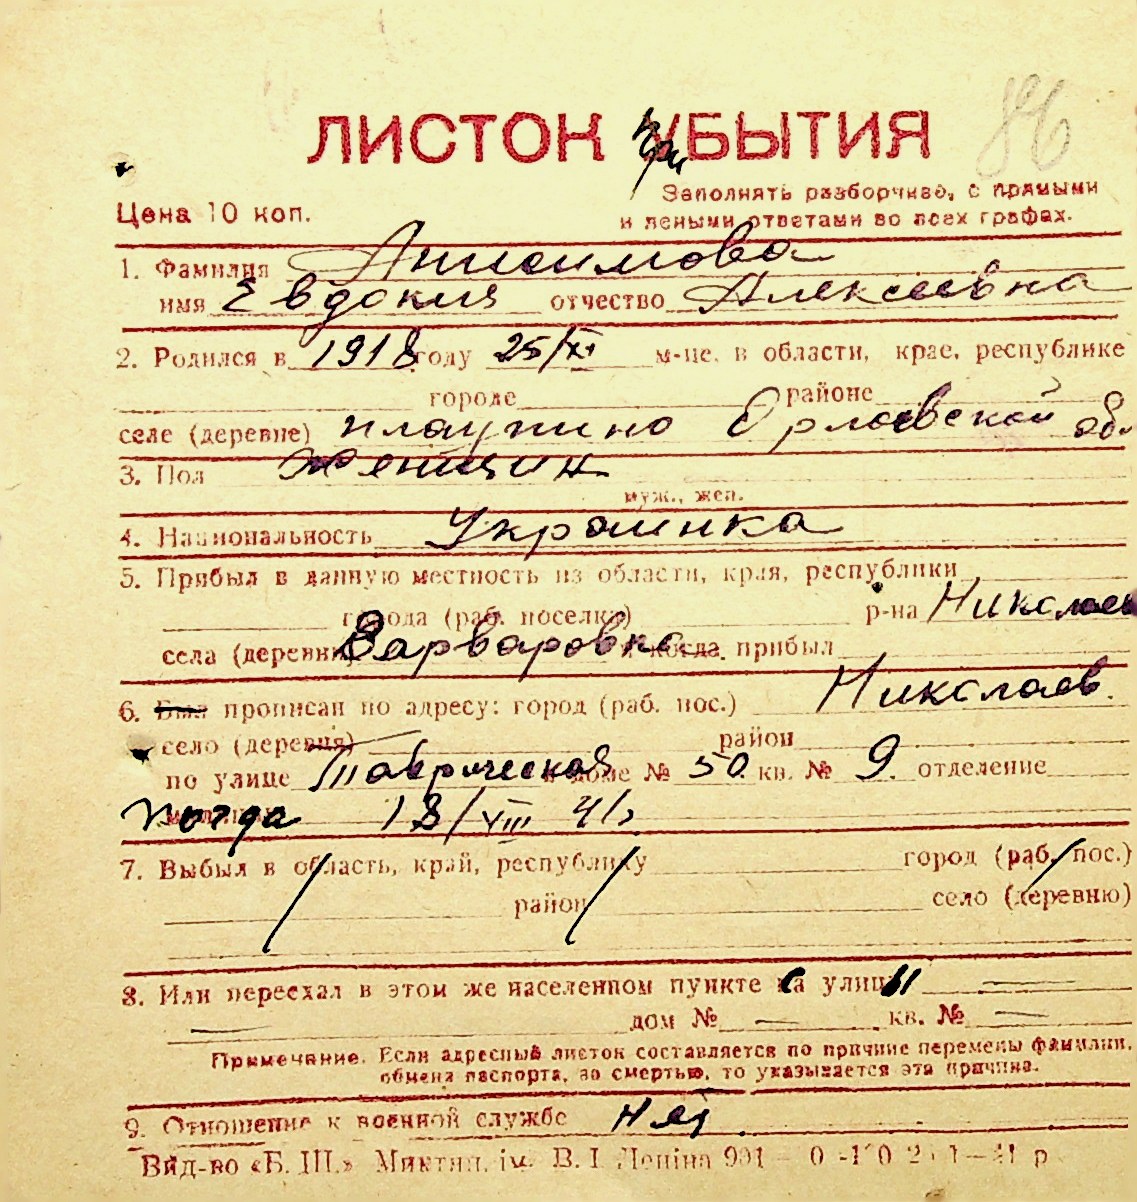 86
ЛИСТОК при УБЫТИЯ
Заполнять разборчиво, с прямыми
Цена 10 коп.
и ясными ответами во всех графах.
1. Фамилия Анисимова
имя Евдокия отчество Алексеевна
2. Родился в 1918 году 25/XI м-це, в области, крае, республике
городе районе
селе (деревне) Плаутино Орловской обл
3. Пол Женщин
муж., жен.
4. Национальность Украинка
5. Прибыл в данную местность из области, края, республики
города (раб. поселка) р-на Николаев
села (деревни) Варваровка и когда прибыл
6. Был прописан по адресу: город (раб. пос.) Николаев.
село (деревня) район
по улице Таврическая в доме № 50 кв. № 9. отделение
когда 18/VIII 41
7. Выбыл в область, край, республику город (раб. пос.)
район село (деревню)
8. Или переехал в этом же населенном пункте с улицы —
— дом № — кв. № —
Примечание. Если адресный листок составляется по причине перемены фамилии,
обмена паспорта, за смертью, то указывается эта причина.
9. Отношение к военной службе Нет
Вид-во «Б. Ш.» Миктип. ім. В. І. Леніна